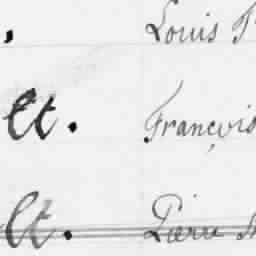 . Louis
et. François
et. Pierre